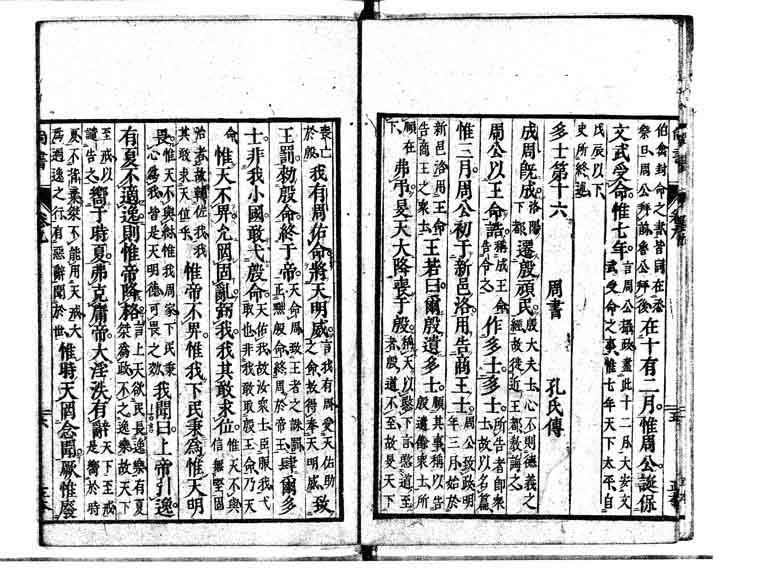 伯禽封命之書皆同在烝祭日周公拜前魯公拜後在十有二月惟周公誕保
文武受命惟七年言周公攝政盡此十二月大安文武受命之事惟七年天下太平自
戊辰以下史所終述
多士第十六 周書 孔氏傳
成周既成洛陽下都遷殷頑民殷大夫士心不則德義之經故徙近王都教誨之
周公以王命誥稱成王命告令之作多士多士所告者即衆士故以名篇
惟三月周公初于新邑洛用告商王士周公致政明年三月始於
新邑洛用王命告商王之衆士王若曰爾殷遺多士順其事稱以告殷遺餘衆士所
順在下弗弔旻天大降喪于殷稱天以愍下言愍道至者殷道不至故旻天下
喪亡於殷我有周佑命將天明威言我有周受天佑助之命故得奉天明威致
王罰勑殷命終于帝天命周致王者之誅罰正黜殷命終周於帝王肆爾多
士非我小國敢弋殷命天佑我故汝衆士臣服我弋取也非我敢取殷王命乃天
命惟天不畀允罔固亂弼我我其敢求位惟天不與信無堅固
治者故輔佐我我其敢求天位乎惟帝不畀惟我下民秉爲惟天明
畏惟天不與紂惟我周家下民秉心爲我皆是天明德可畏之效我聞曰上帝引逸
有夏不適逸則惟帝降格言上天欲民長逸樂有夏桀爲政不之逸樂故天下
至戒以譴告之嚮于時夏弗克庸帝大淫泆有辭天下至戒是嚮於時
夏不背棄桀不能用天戒大爲過逸之行有惡辭聞於世惟時天罔念聞厥惟廢
尚書 卷九